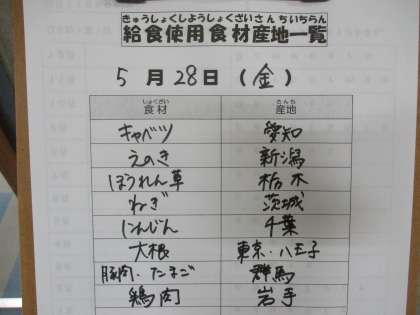 きゅうしょくしようしょくざいさんちいちらん
給食使用食材産地一覧
5月28日(金)
しょくざい さんち
食材 産地
キャベツ 愛知
えのき 新潟
ほうれん草 栃木
ねぎ 茨城
にんじん 千葉
大根 東京・八王子
豚肉・たまご 群馬
鶏肉 岩手